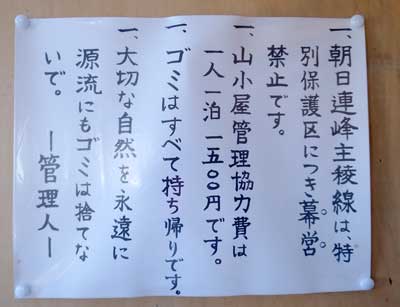 一、朝日連峰主稜線は、特
別保護区につき幕営
禁止です。
一、山小屋管理協力費は
一人一泊 一五〇〇円です。
一、ゴミはすべて持ち帰りです。
一、大切な自然を永遠に
源流にもゴミは捨てな
いで。 ー管理人ー